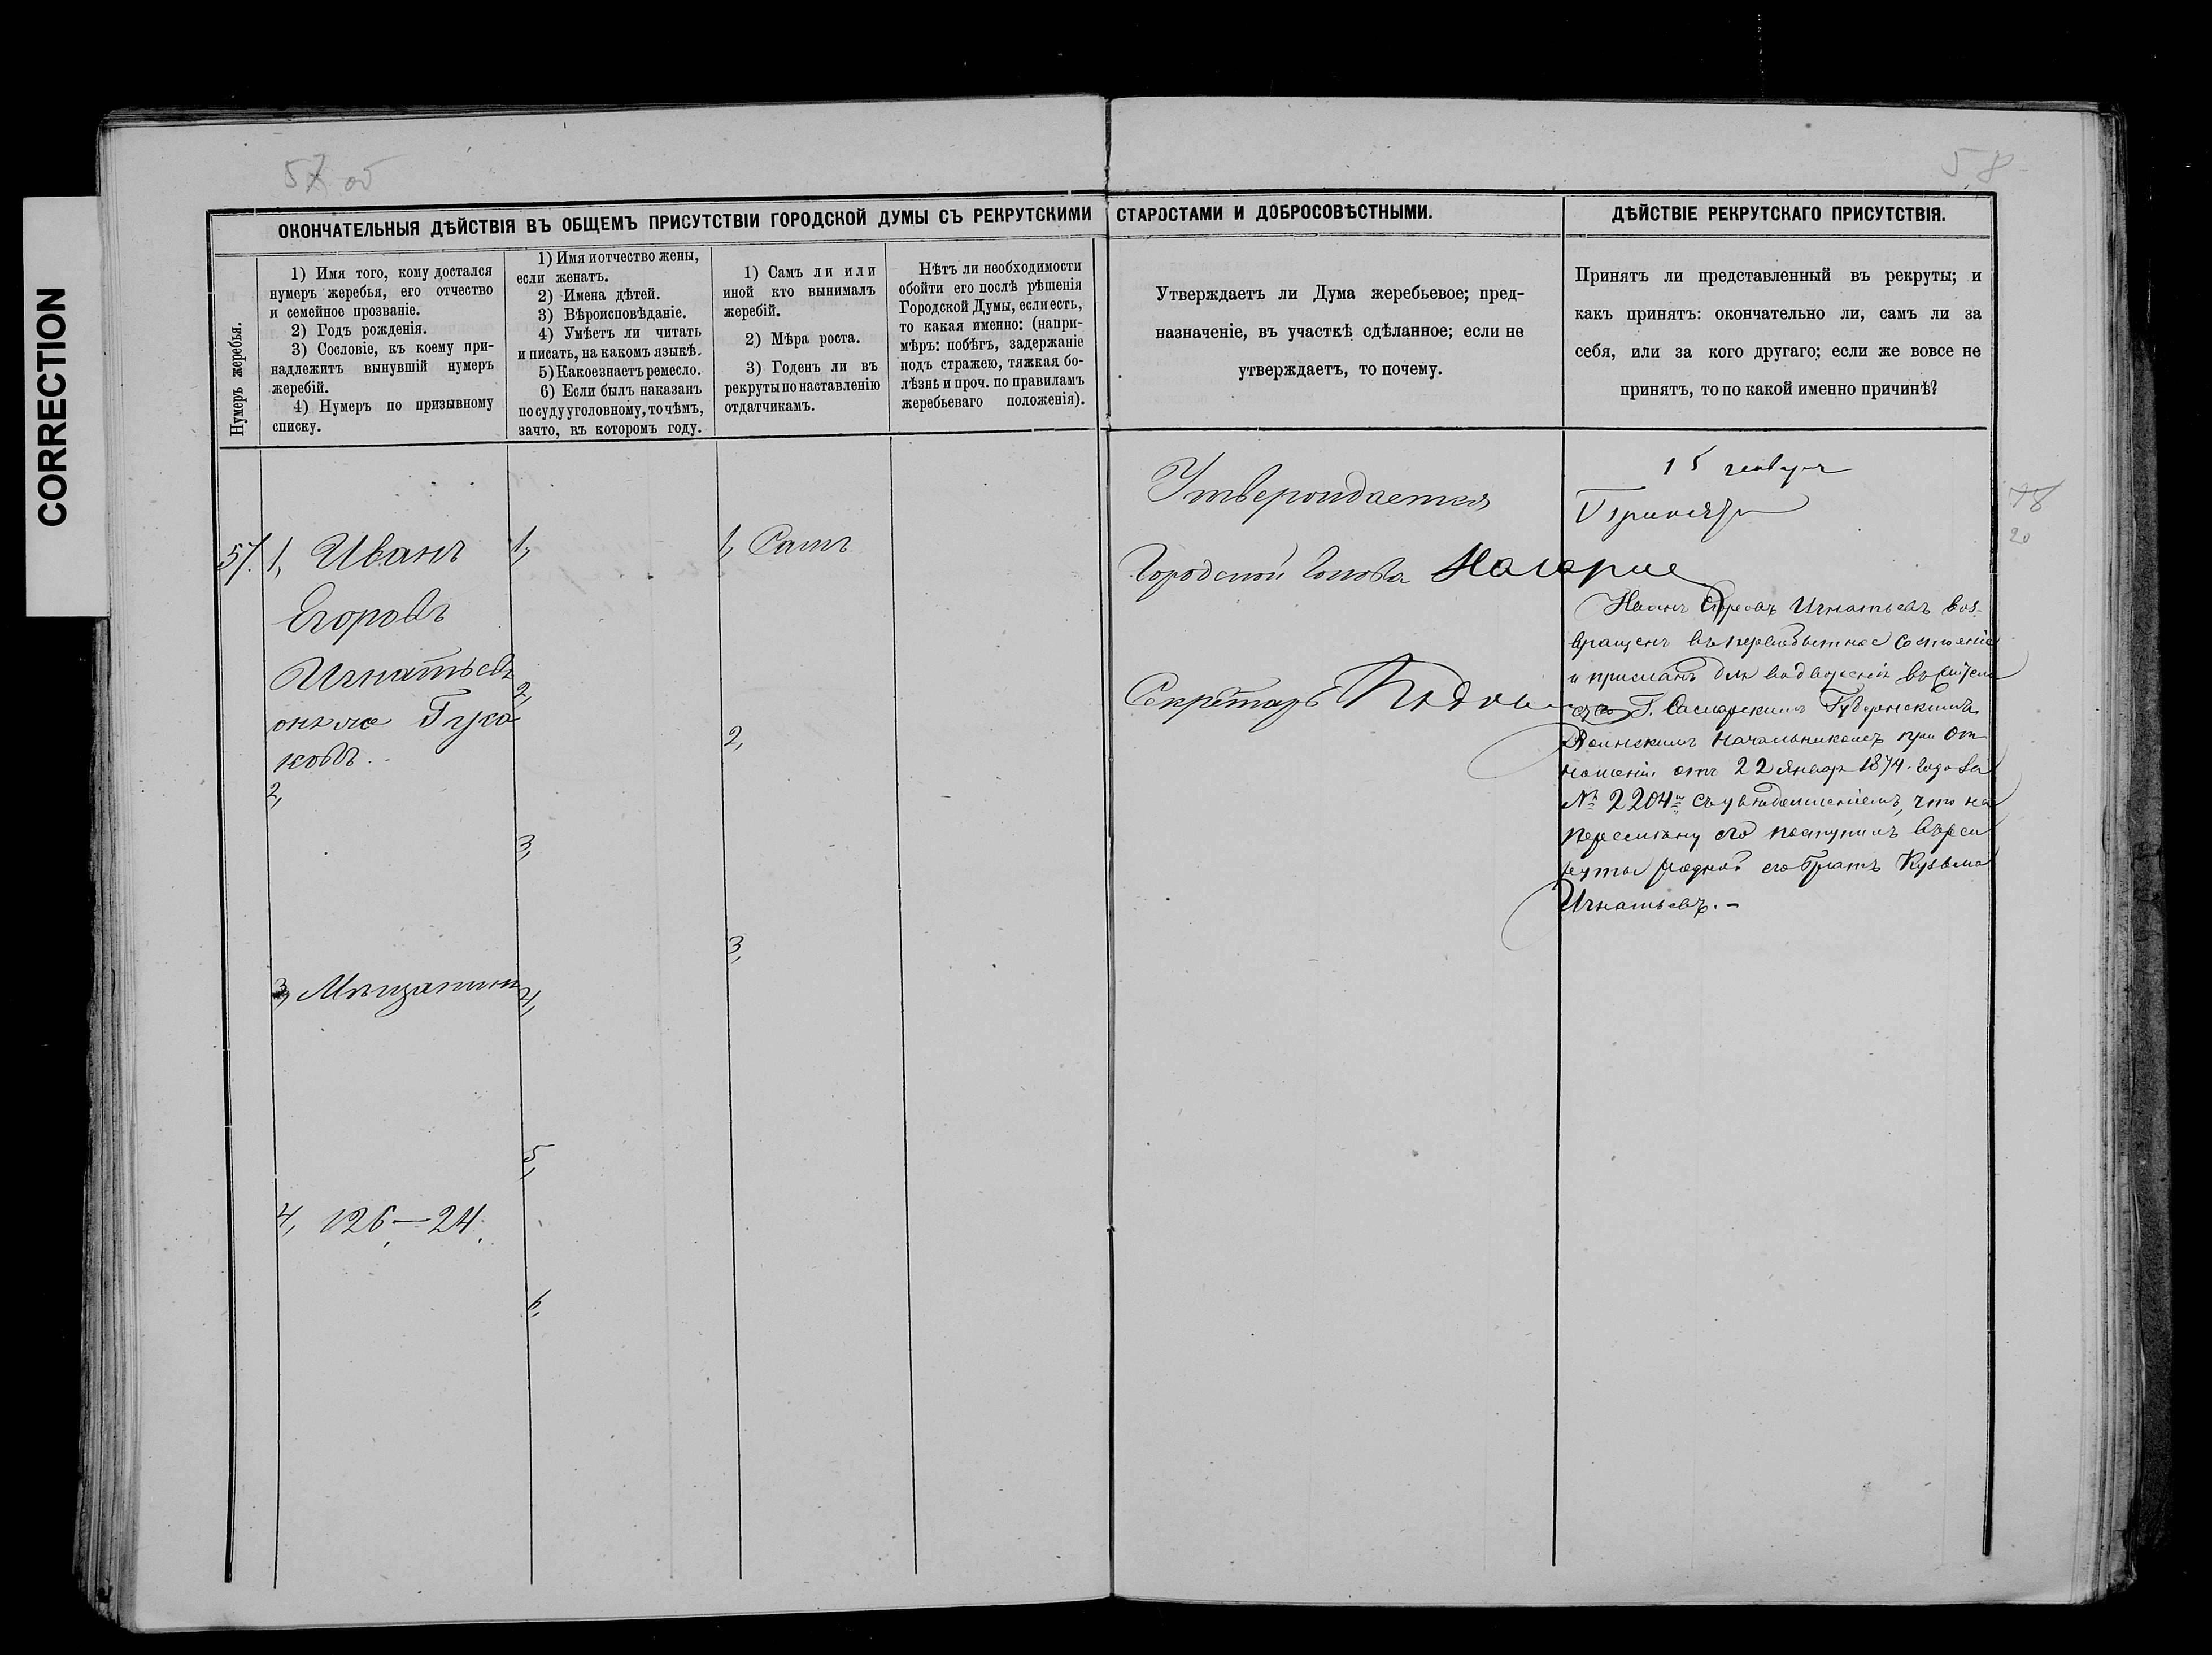 CORRECTION
57 об
58
ОКОНЧАТЕЛЬНЫЯ ДѢЙСТВІЯ ВЪ ОБЩЕМЪ ПРИСУТСТВІИ ГОРОДСКОЙ ДУМЫ СЪ РЕКРУТСКИМИ СТАРОСТАМИ И ДОБРОСОВѢСТНЫМИ.
ДѢЙСТВІЕ РЕКРУТСКАГО ПРИСУТСТВІЯ.
Нумеръ жеребья.
1) Имя того, кому достался
нумеръ жеребья, его отчество
и семейное прозваніе.
2) Годъ рожденія.
3) Сословіе, къ коему при-
надлежитъ вынувшій нумеръ
жеребій.
4) Нумеръ по призывному
списку.
1) Имя и отчество жены,
если женатъ.
2) Имена дѣтей.
3) Вѣроисповѣданіе.
4) Умѣетъ ли читать
и писать, на какомъ языкѣ.
5) Какое знаетъ ремесло.
6) Если былъ наказанъ
по суду уголовному, то чѣмъ,
за что, въ которомъ году.
1) Самъ ли или
иной кто вынималъ
жеребій.
2) Мѣра роста.
3) Годенъ ли въ
рекруты по наставленію
отдатчикамъ.
Нѣтъ ли необходимости
обойти его послѣ рѣшенія
Городской Думы, если есть,
то какая именно: (напри-
мѣръ: побѣгъ, задержаніе
подъ стражею, тяжкая бо-
лѣзнь и проч. по правиламъ
жеребьеваго положенія).
Утверждаетъ ли Дума жеребьевое; пред-
назначеніе, въ участкѣ сдѣланное; если не
утверждаетъ, то почему.
Принятъ ли представленный въ рекруты; и
какъ принятъ: окончательно ли, самъ ли за
себя, или за кого другаго; если же вовсе не
принятъ, то по какой именно причинѣ?
57. 1, Иванъ
Егоровъ
Игнатьевъ
онъ же Гуса
ковъ.
2,
3, Мѣщанинъ
4, 126—24.
1,
2,
3,
4,
5,
6,
1, Самъ
2,
3,
Утверждается
Городской Голова
Секретарь
15 января
Принятъ
78
20
Иванъ Егоровъ Игнатьевъ воз-
вращенъ въ первобытное состояніе
и присланъ для водворенія
Г. Самарскимъ Губернскимъ
Воинскимъ Начальникомъ при от-
ношеніи отъ 22 Января 1874 года за
№ 2204 съ увѣдомленіемъ, что на
перемѣну его поступилъ въ рек
руты родной его братъ Кузьма
Игнатьевъ.-